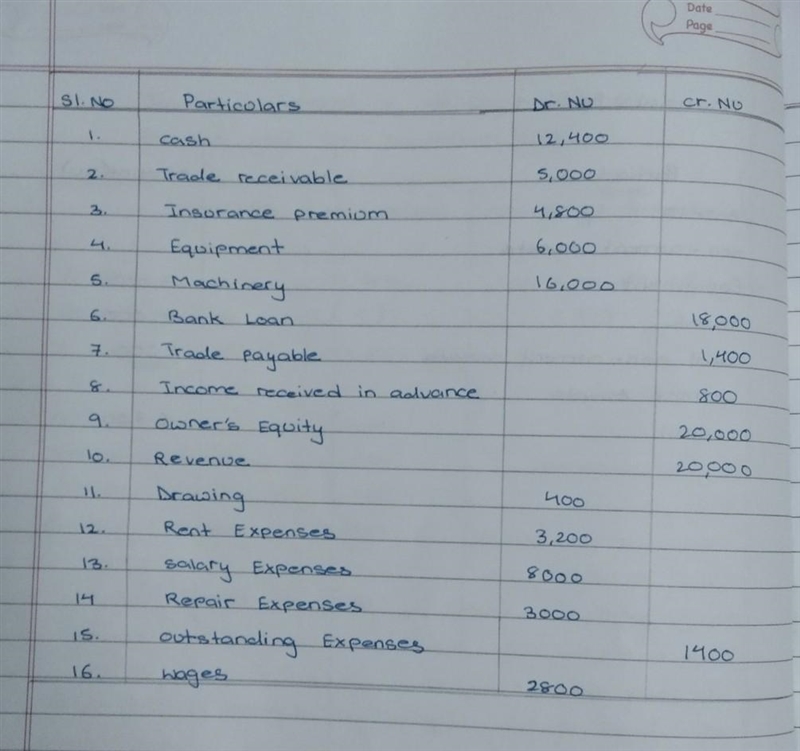 Date
Page
Sl. No Particolars Dr. NU Cr. NU
1. Cash 12,400
2. Trade receivable 5,000
3. Insorance premiom 4,800
4. Equipment 6,000
5. Machinery 16,000
6. Bank Loan 18,000
7. Trade payable 1,400
8. Income received in advance 800
9. Owner's Equity 20,000
10. Revenue 20,000
11. Drawing 400
12. Rent Expenses 3,200
13. Salary Expenses 8000
14 Repair Expenses 3000
15. Outstanding Expenses 1400
16. Wages 2800